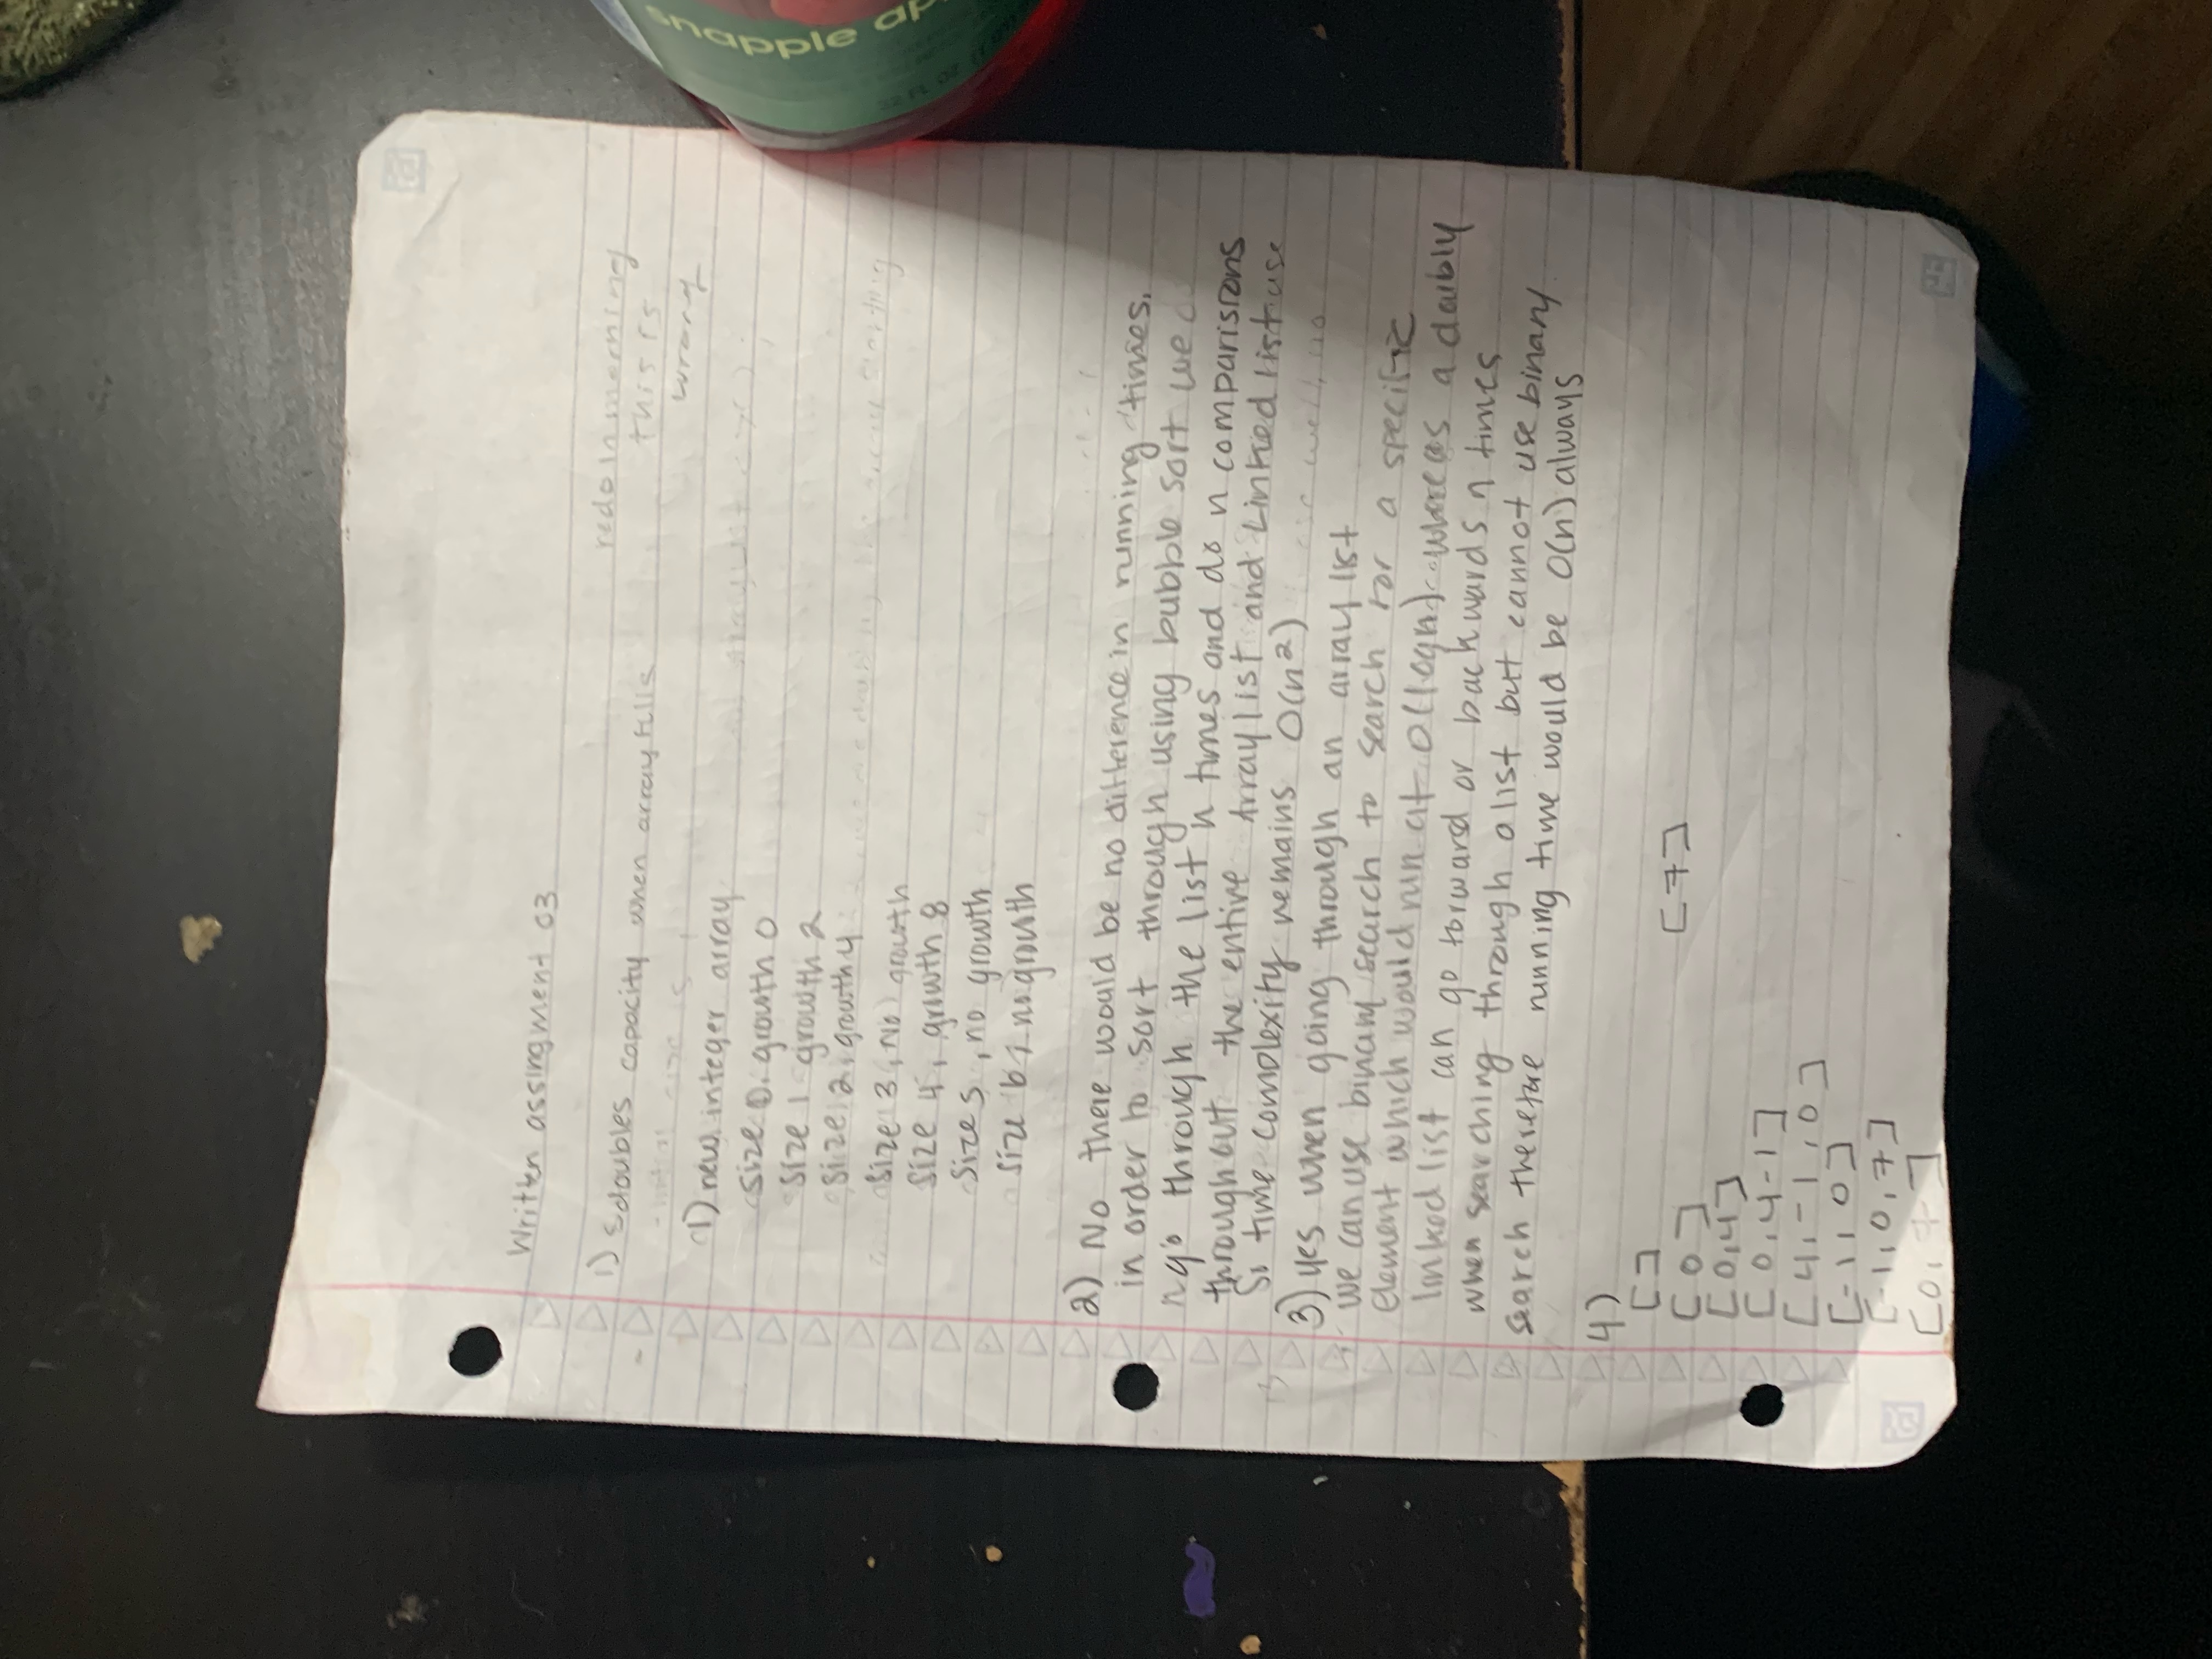 Written assingment 03
redo in morning
this is
wrong
1) doubles capacity when array fills
- initial size is 1
1) new integer array
size 0, growth 0
size 1 growth 2
size 2, growth 4
size 3, No growth
size 4, growth 8
size 5, no growth
size 6, no growth
2) No there would be no difference in running times.
in order to sort through using bubble sort we
go through the list n times and do n comparisions
throughout the entire Array list and Linked list use
So time complexity remains O(n²)
3) yes when going through an array list
we can use binary search to search for a specific
element which would run at O(logn) whereas a doubly
linked list can go forward or backwards n times
when searching through a list but cannot use binary
search therefore running time would be O(n) always
4)
[]
[0]
[7]
[0,4]
[0,4-1]
[4,-1,0]
[-1,0]
[-1,0,7]
[0,7]
snapple ap